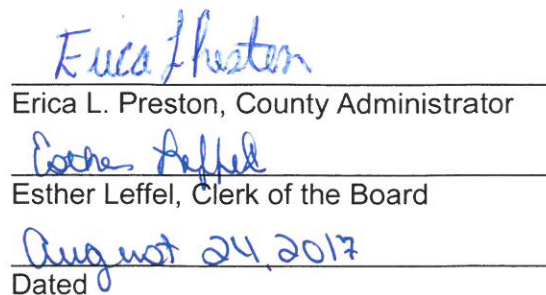 Erica L Preston
Erica L. Preston, County Administrator
Esther Leffel
Esther Leffel, Clerk of the Board
August 24, 2017
Dated